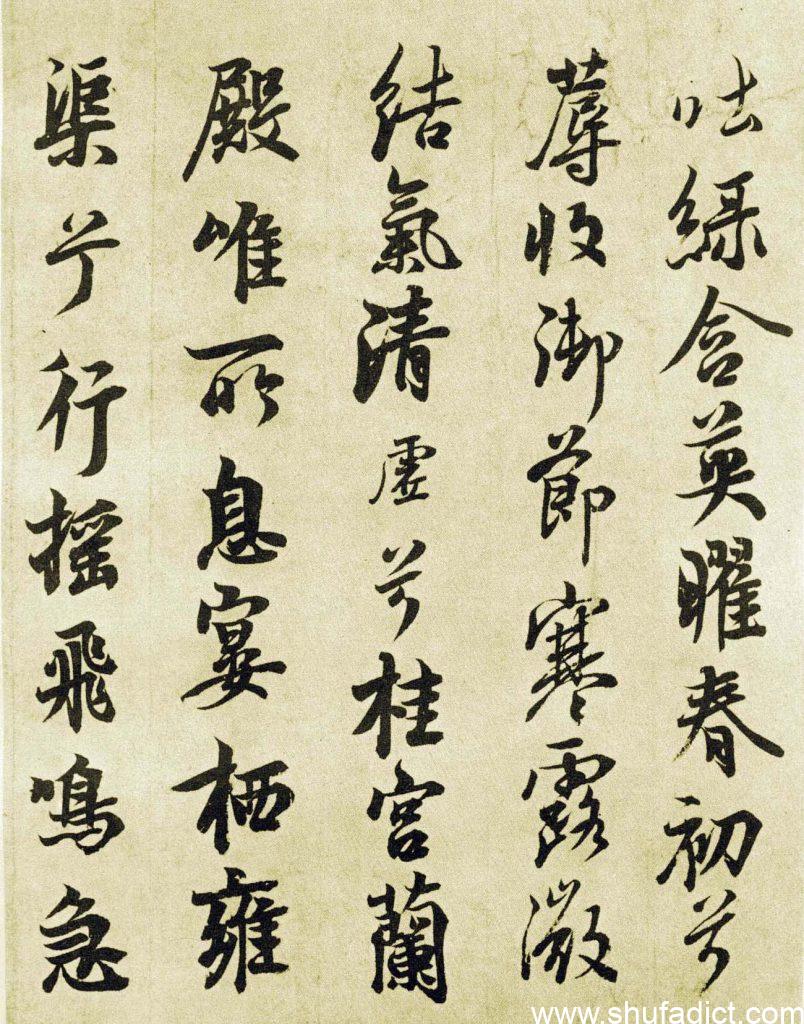 吐緑含英曜春初兮
蓐收御節寒露微
結氣清虛兮桂宮蘭
殿唯所息宴栖雍
渠兮行搖飛鳴急
www.shufadict.com